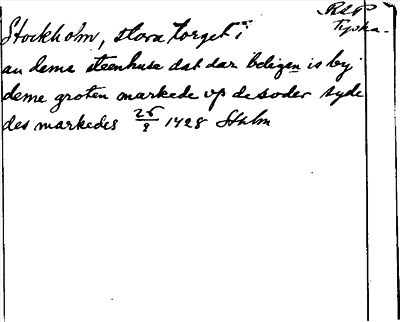 RSP
Tyska.
Stockholm, stora torget:
an deme steenhuse dat dar beligen is by
deme groten markede up de soder syde
des markedes 25/2 1428 Sthlm